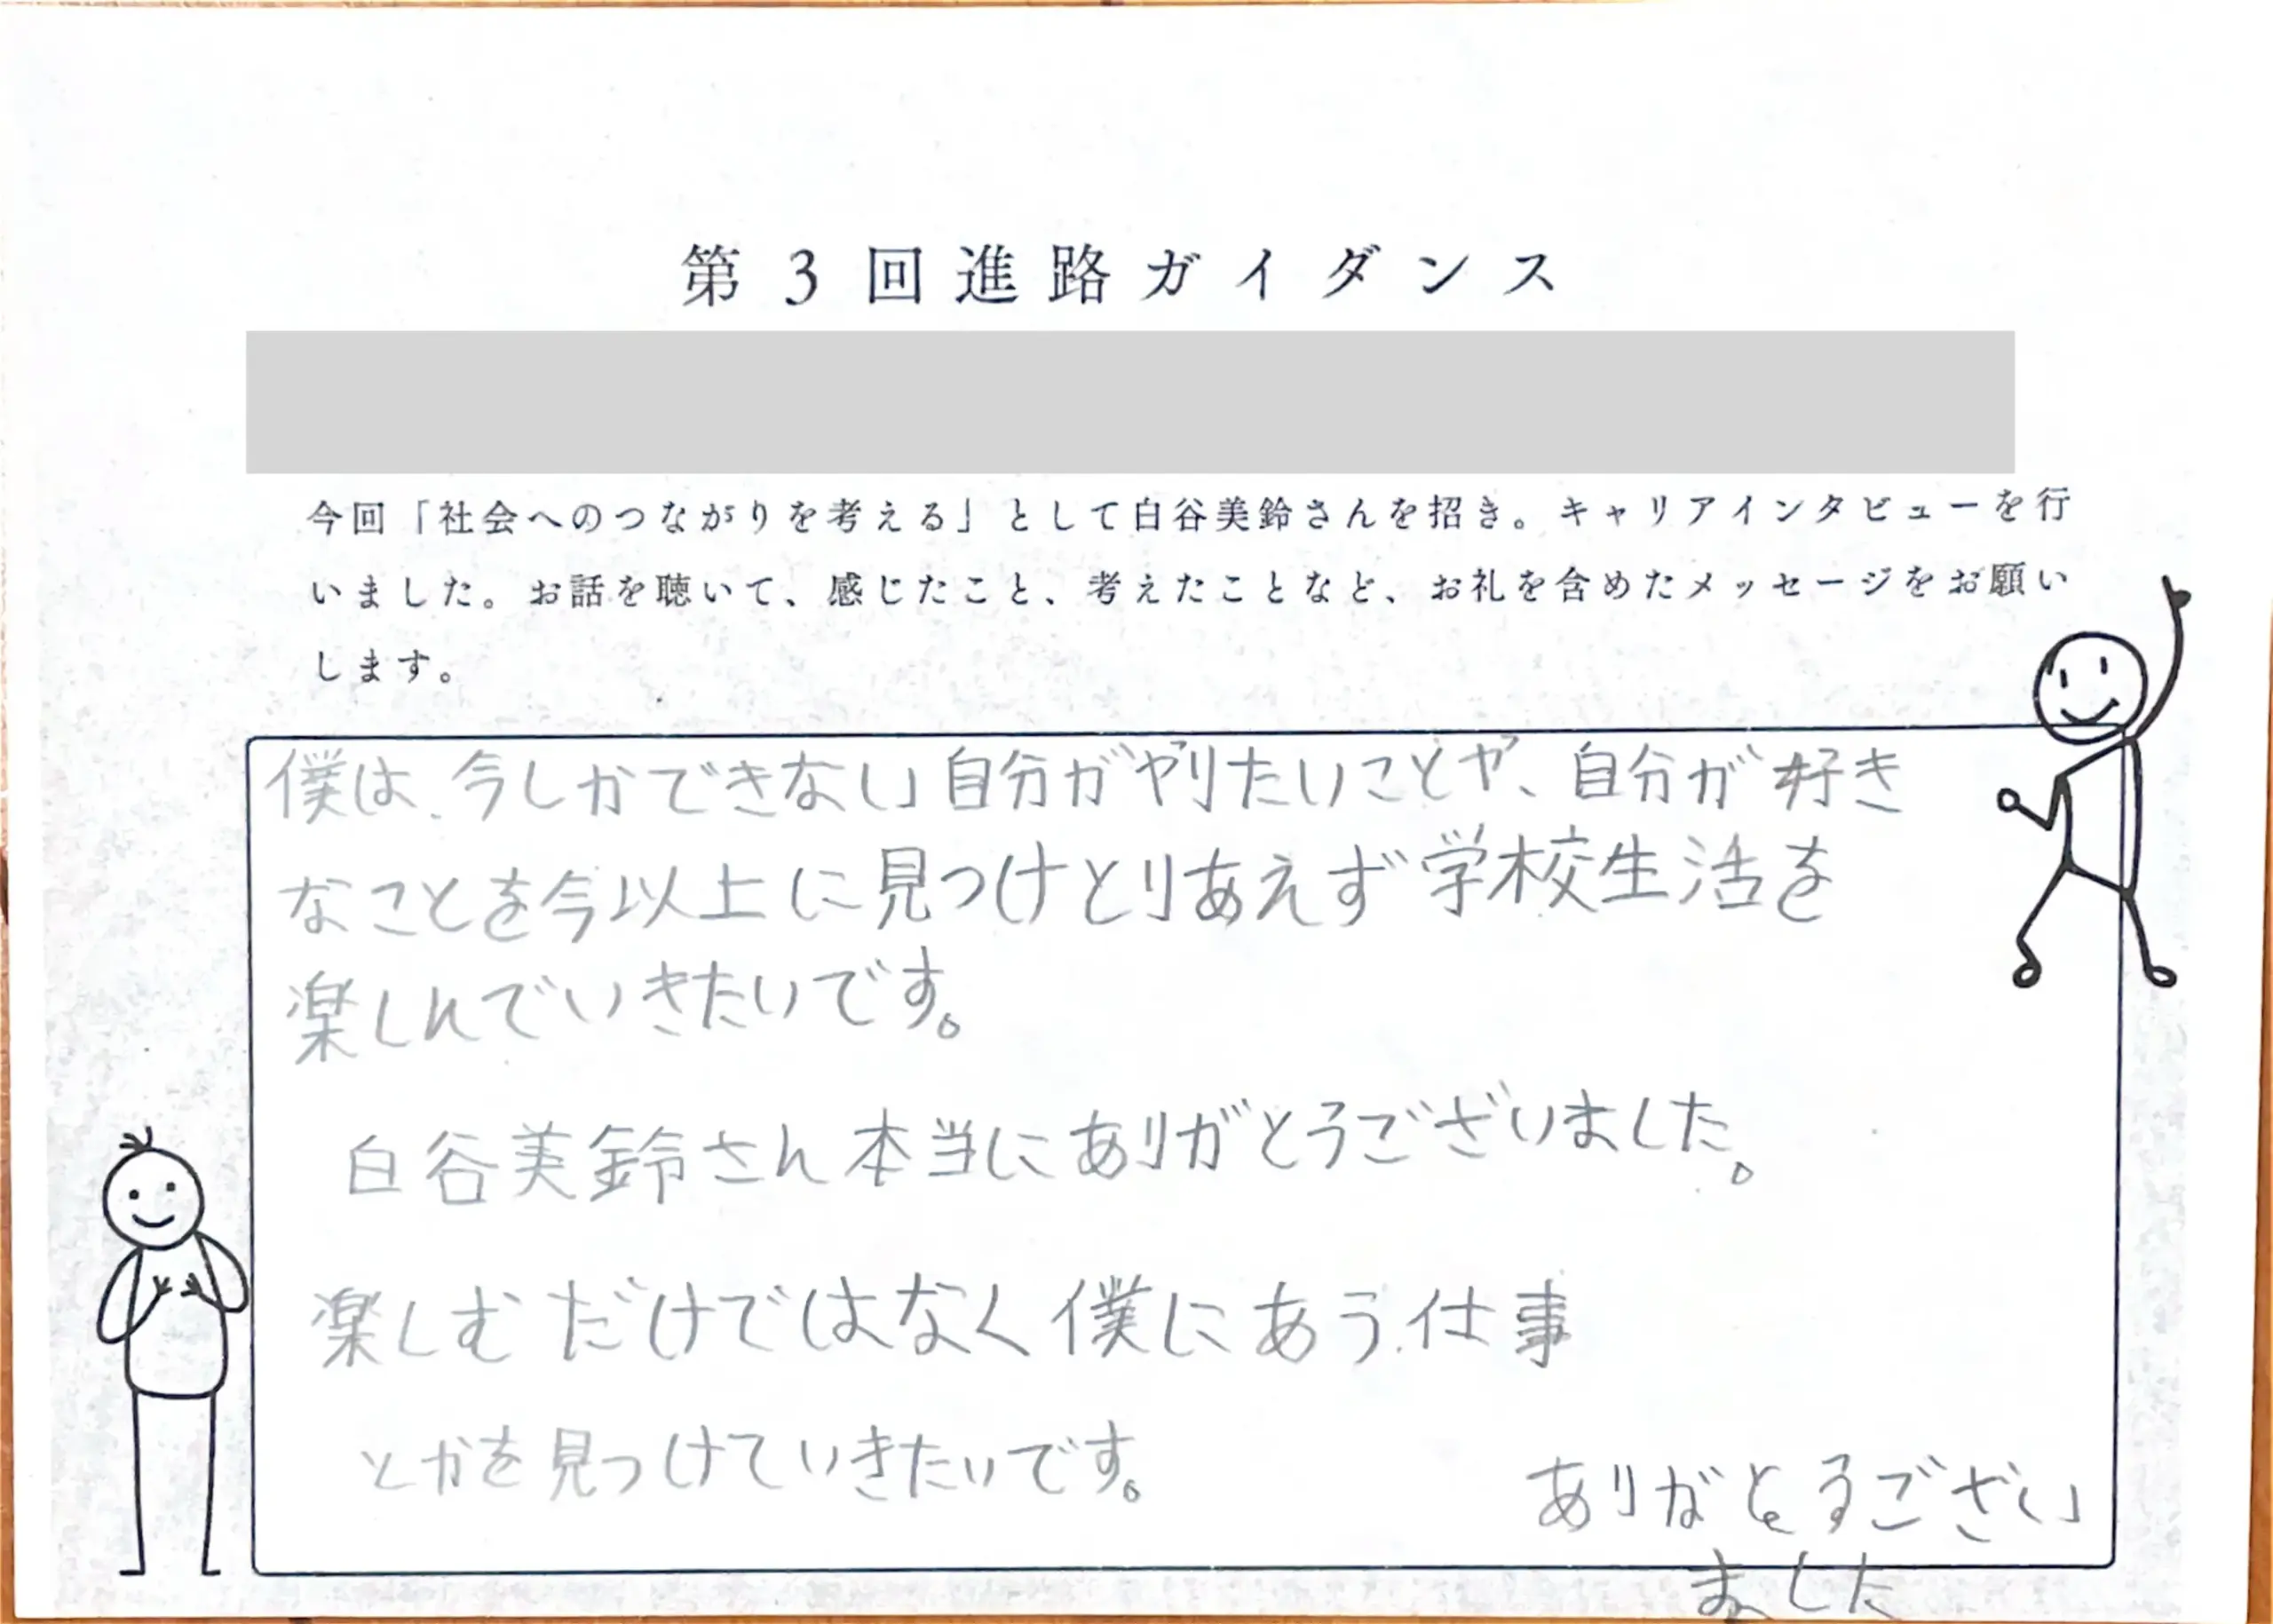 第3回進路ガイダンス
今回「社会へのつながりを考える」として白谷美鈴さんを招き。キャリアインタビューを行
いました。お話を聴いて、感じたこと、考えたことなど、お礼を含めたメッセージをお願い
します。
僕は、今しかできない自分がやりたいことや、自分が好き
なことを今以上に見つけとりあえず学校生活を
楽しんでいきたいです。
白谷美鈴さん本当にありがとうございました。
楽しむだけではなく僕にあう仕事
とかを見つけていきたいです。
ありがとうござい
ました